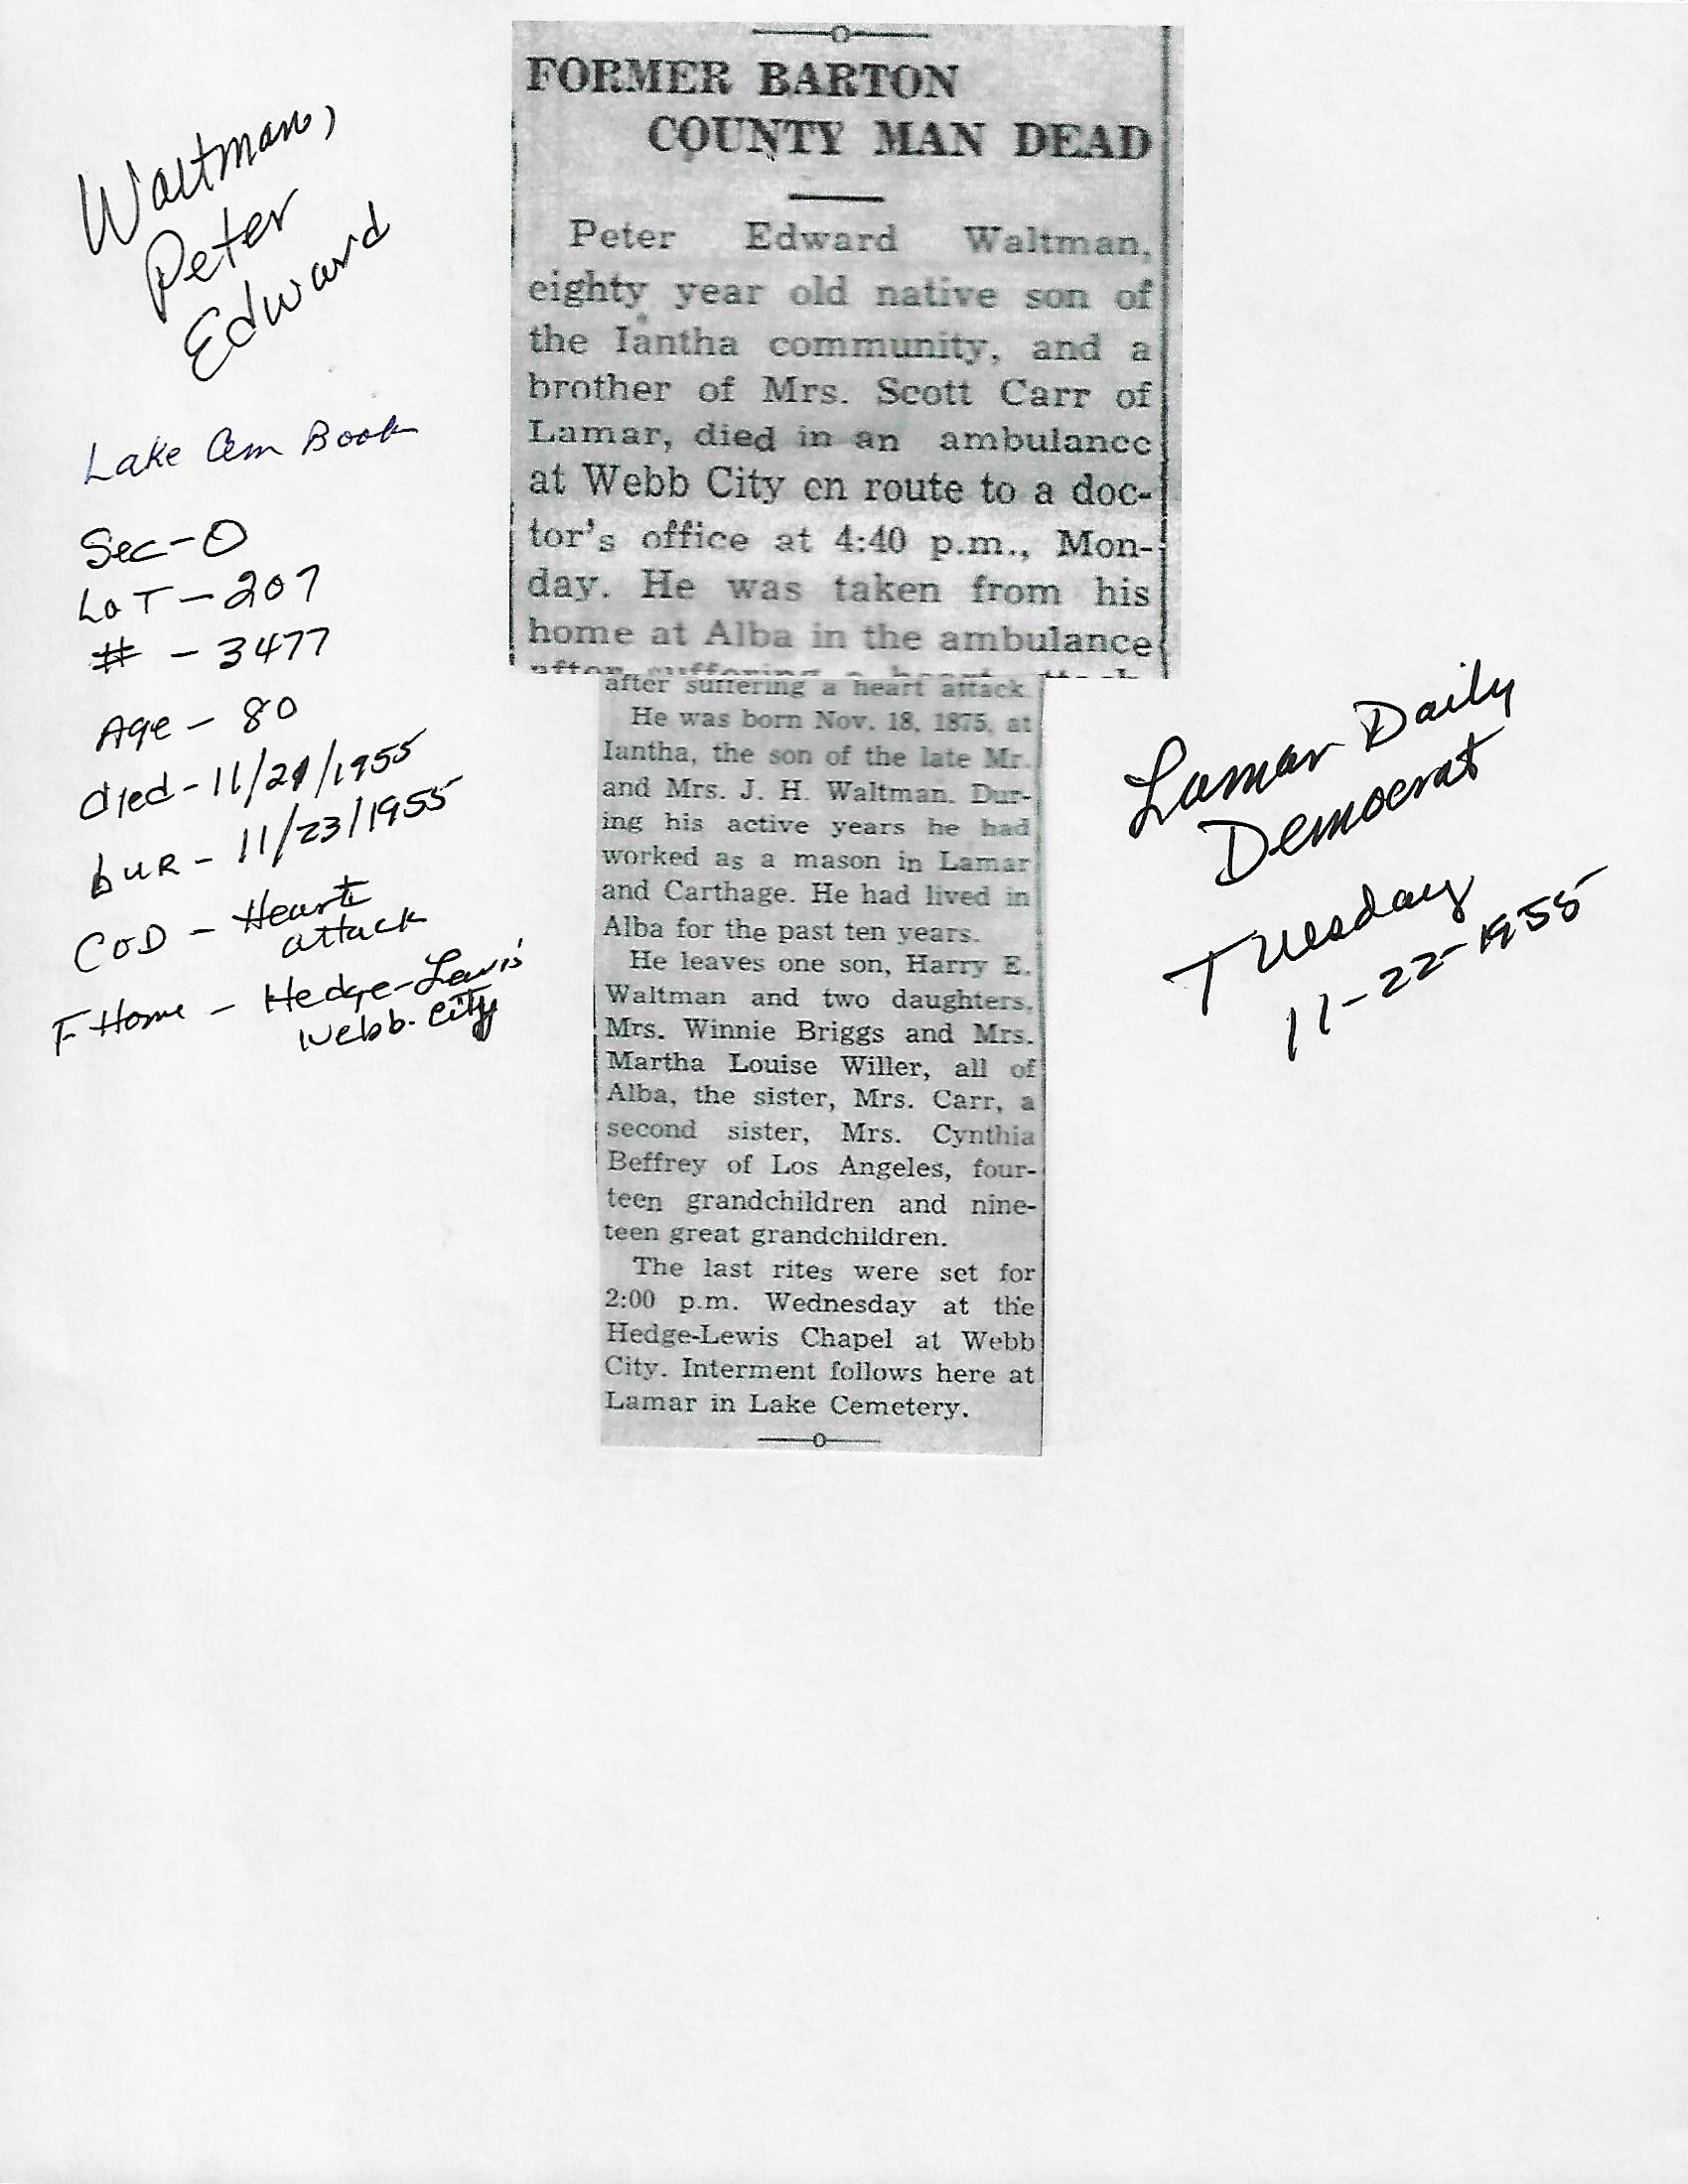 Waltman,
Peter
Edward
Lake Cem Book
Sec-O
LoT-207
# - 3477
Age - 80
died-11/21/1955
bur - 11/23/1955
COD - Heart
attack
F Home - Hedge-Lewis
Webb City
FORMER BARTON
COUNTY MAN DEAD
Peter Edward Waltman,
eighty year old native son of
the Iantha community, and a
brother of Mrs. Scott Carr of
Lamar, died in an ambulance
at Webb City en route to a doc-
tor's office at 4:40 p.m., Mon-
day. He was taken from his
home at Alba in the ambulance
after suffering a heart attack
after suffering a heart attack.
He was born Nov. 18, 1875, at
Iantha, the son of the late Mr.
and Mrs. J. H. Waltman. Dur-
ing his active years he had
worked as a mason in Lamar
and Carthage. He had lived in
Alba for the past ten years.
He leaves one son, Harry E.
Waltman and two daughters,
Mrs. Winnie Briggs and Mrs.
Martha Louise Willer, all of
Alba, the sister, Mrs. Carr, a
second sister, Mrs. Cynthia
Beffrey of Los Angeles, four-
teen grandchildren and nine-
teen great grandchildren.
The last rites were set for
2:00 p.m. Wednesday at the
Hedge-Lewis Chapel at Webb
City. Interment follows here at
Lamar in Lake Cemetery.
Lamar Daily
Democrat
Tuesday
11-22-1955